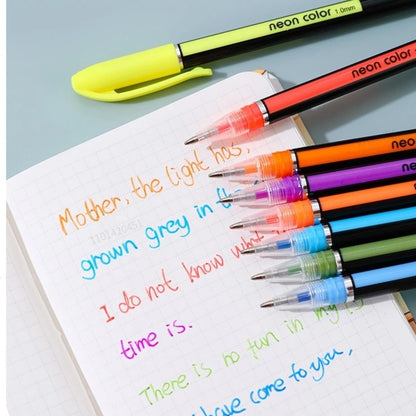 neon color 1.0mm
neon color
neon color
neon
Mother, the light has,
grown grey in the
I do not know what
time is.
There is no fun in my
have come to you,